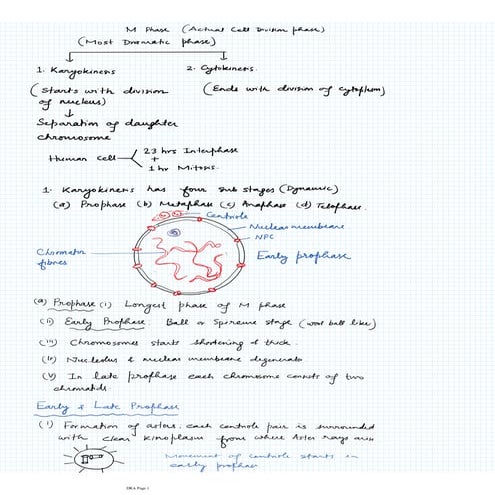 M Phase (Actual Cell Division phase)
(Most Dramatic phase)
1. Karyokinesis
2. Cytokinesis.
(Starts with division
of nucleus)
(Ends with division of cytoplasm)
Separation of daughter
chromosome
Human Cell
23 hrs Interphase
+
1 hr Mitosis.
1. Karyokinesis has four sub stages (Dynamic)
(a) Prophase (b) Metaphase (c) Anaphase (d) Telophase.
Centriole
Nuclear membrane
NPC
Chromatin
fibres
Early prophase
(a) Prophase (i) Longest phase of M phase
(ii) Early Prophase: Ball or Spireme stage (wool ball like)
(iii) Chromosomes starts shortening & thick.
(iv) Nucleolus & nuclear membrane degenerate
(v) In late prophase each chromosome consists of two
chromatids.
Early & Late Prophase
(i) Formation of asters: each centriole pair is surrounded
with clear kinoplasm from where Aster rays arise
Movement of centriole starts in
early prophase
DRA Page 1